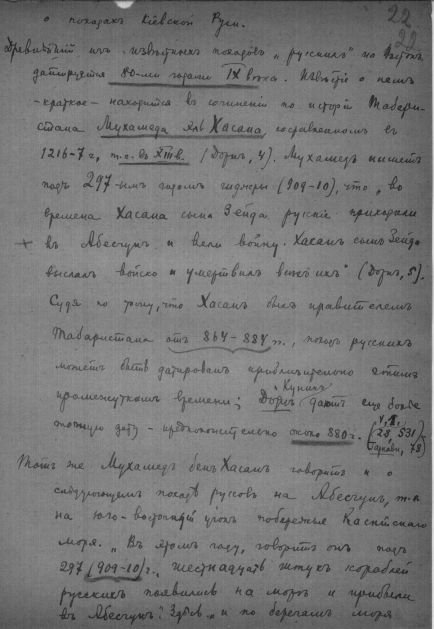 22.
22
о походахъ Кіевской Руси.
Древнѣйшій изъ извѣстныхъ походовъ „русскихъ“ на Востокъ
датируется 80-ми годами IX вѣка. Извѣстіе о немъ
-краткое- находится въ сочиненіи по исторіи Табари-
стана Мухамеда Хасана, составленномъ въ
1216-7 г., т.е. въ XIII в. (Дорнъ, 4). Мухамедъ пишетъ
подъ 297-ымъ годомъ гиджры (909-10), что „во
времена Хасана сына Зейда русскіе приходили
+ въ Абесгунъ и вели войну. Хасанъ сынъ Зейда
выслалъ войско и умертвилъ всѣхъ ихъ“ (Дорнъ, 5).
Судя по тому, что Хасанъ былъ правителемъ
Табаристана отъ 864-884 г., походъ русскихъ
можетъ быть датированъ приблизительно этимъ
промежуткомъ времени; Куникъ даетъ еще болѣе
точную дату - предположительно около 880 г. (
28, 531)
78)
Тотъ же Мухамедъ бенъ Хасанъ говоритъ и о
слѣдующемъ походѣ руссовъ на Абесгунъ, т.е.
на юго-восточный уголъ побережья Каспійскаго
моря. „Въ этомъ году, говоритъ онъ подъ
297 (909-10) г., шестнадцать штукъ кораблей
русскихъ появились на морѣ и прибыли
въ Абесгунъ. и по берегамъ моря